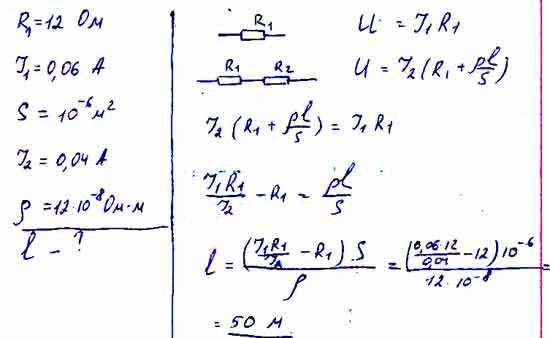 R₁ = 12 Ом
I₁ = 0,06 А
S = 10⁻⁶ м²
I₂ = 0,04 А
ρ = 12·10⁻⁸ Ом·м
l - ?
R₁
U = I₁R₁
R₁ R₂
U = I₂(R₁ + ρl/S)
I₂(R₁ + ρl/S) = I₁R₁
I₁R₁/I₂ - R₁ = ρl/S
l = (I₁R₁/I₂ - R₁)·S/ρ = (0,06·12/0,04 - 12)10⁻⁶/12·10⁻⁸ =
= 50 м